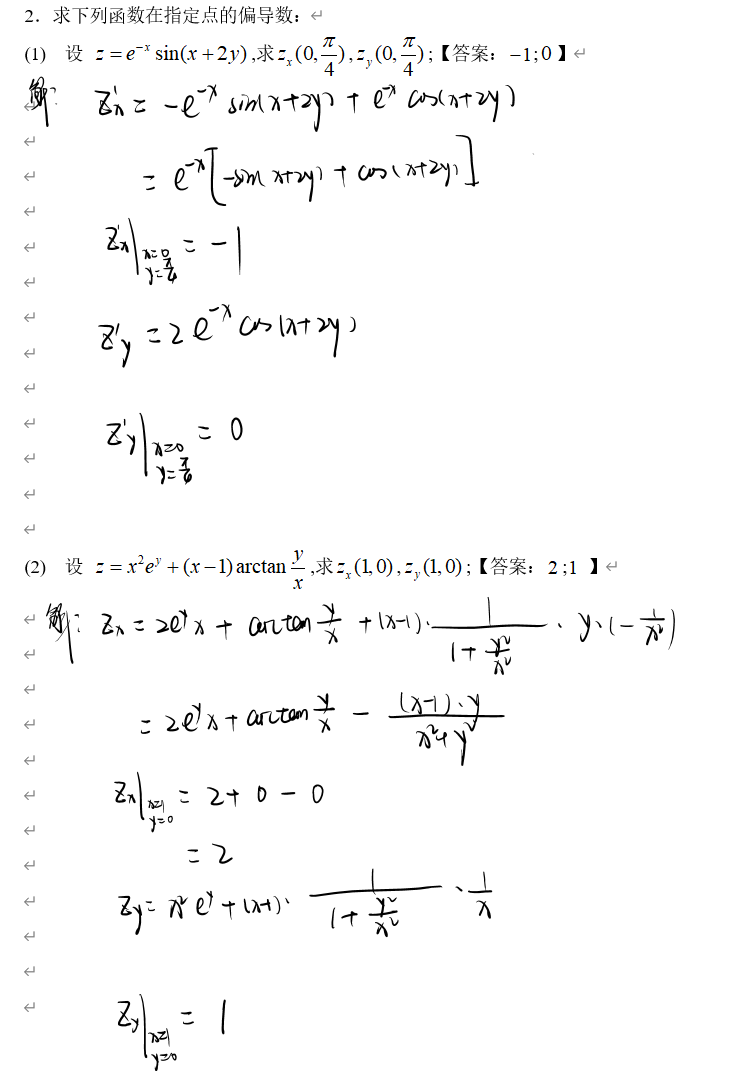 2. 求下列函数在指定点的偏导数：
(1) 设 z = e^{-x} sin(x+2y) ,求 z_x(0, π/4) , z_y(0, π/4) ;【答案：-1;0】
解: z'_x = -e^{-x} sin(x+2y) + e^{-x} cos(x+2y)
= e^{-x}[-sin(x+2y) + cos(x+2y)]
z'_x|_{x=0, y=π/4} = -1
z'_y = 2e^{-x} cos(x+2y)
z'_y|_{x=0, y=} = 0
(2) 设 z = x^2e^y + (x-1)arctan y/x ,求 z_x(1,0) , z_y(1,0) ;【答案：2 ;1 】
解: z_x = 2e^y x + arctan y/x + (x-1)· 1/(1+y^2/x^2) · y·(-1/x^2)
= 2e^y x + arctan y/x - (x-1)·y/(x^2+y^2)
z_x|_{x=1, y=0} = 2+0-0
= 2
z_y = x^2 e^y + (x-1)· 1/(1+y^2/x^2) · 1/x
z_y|_{x=1, y=0} = 1